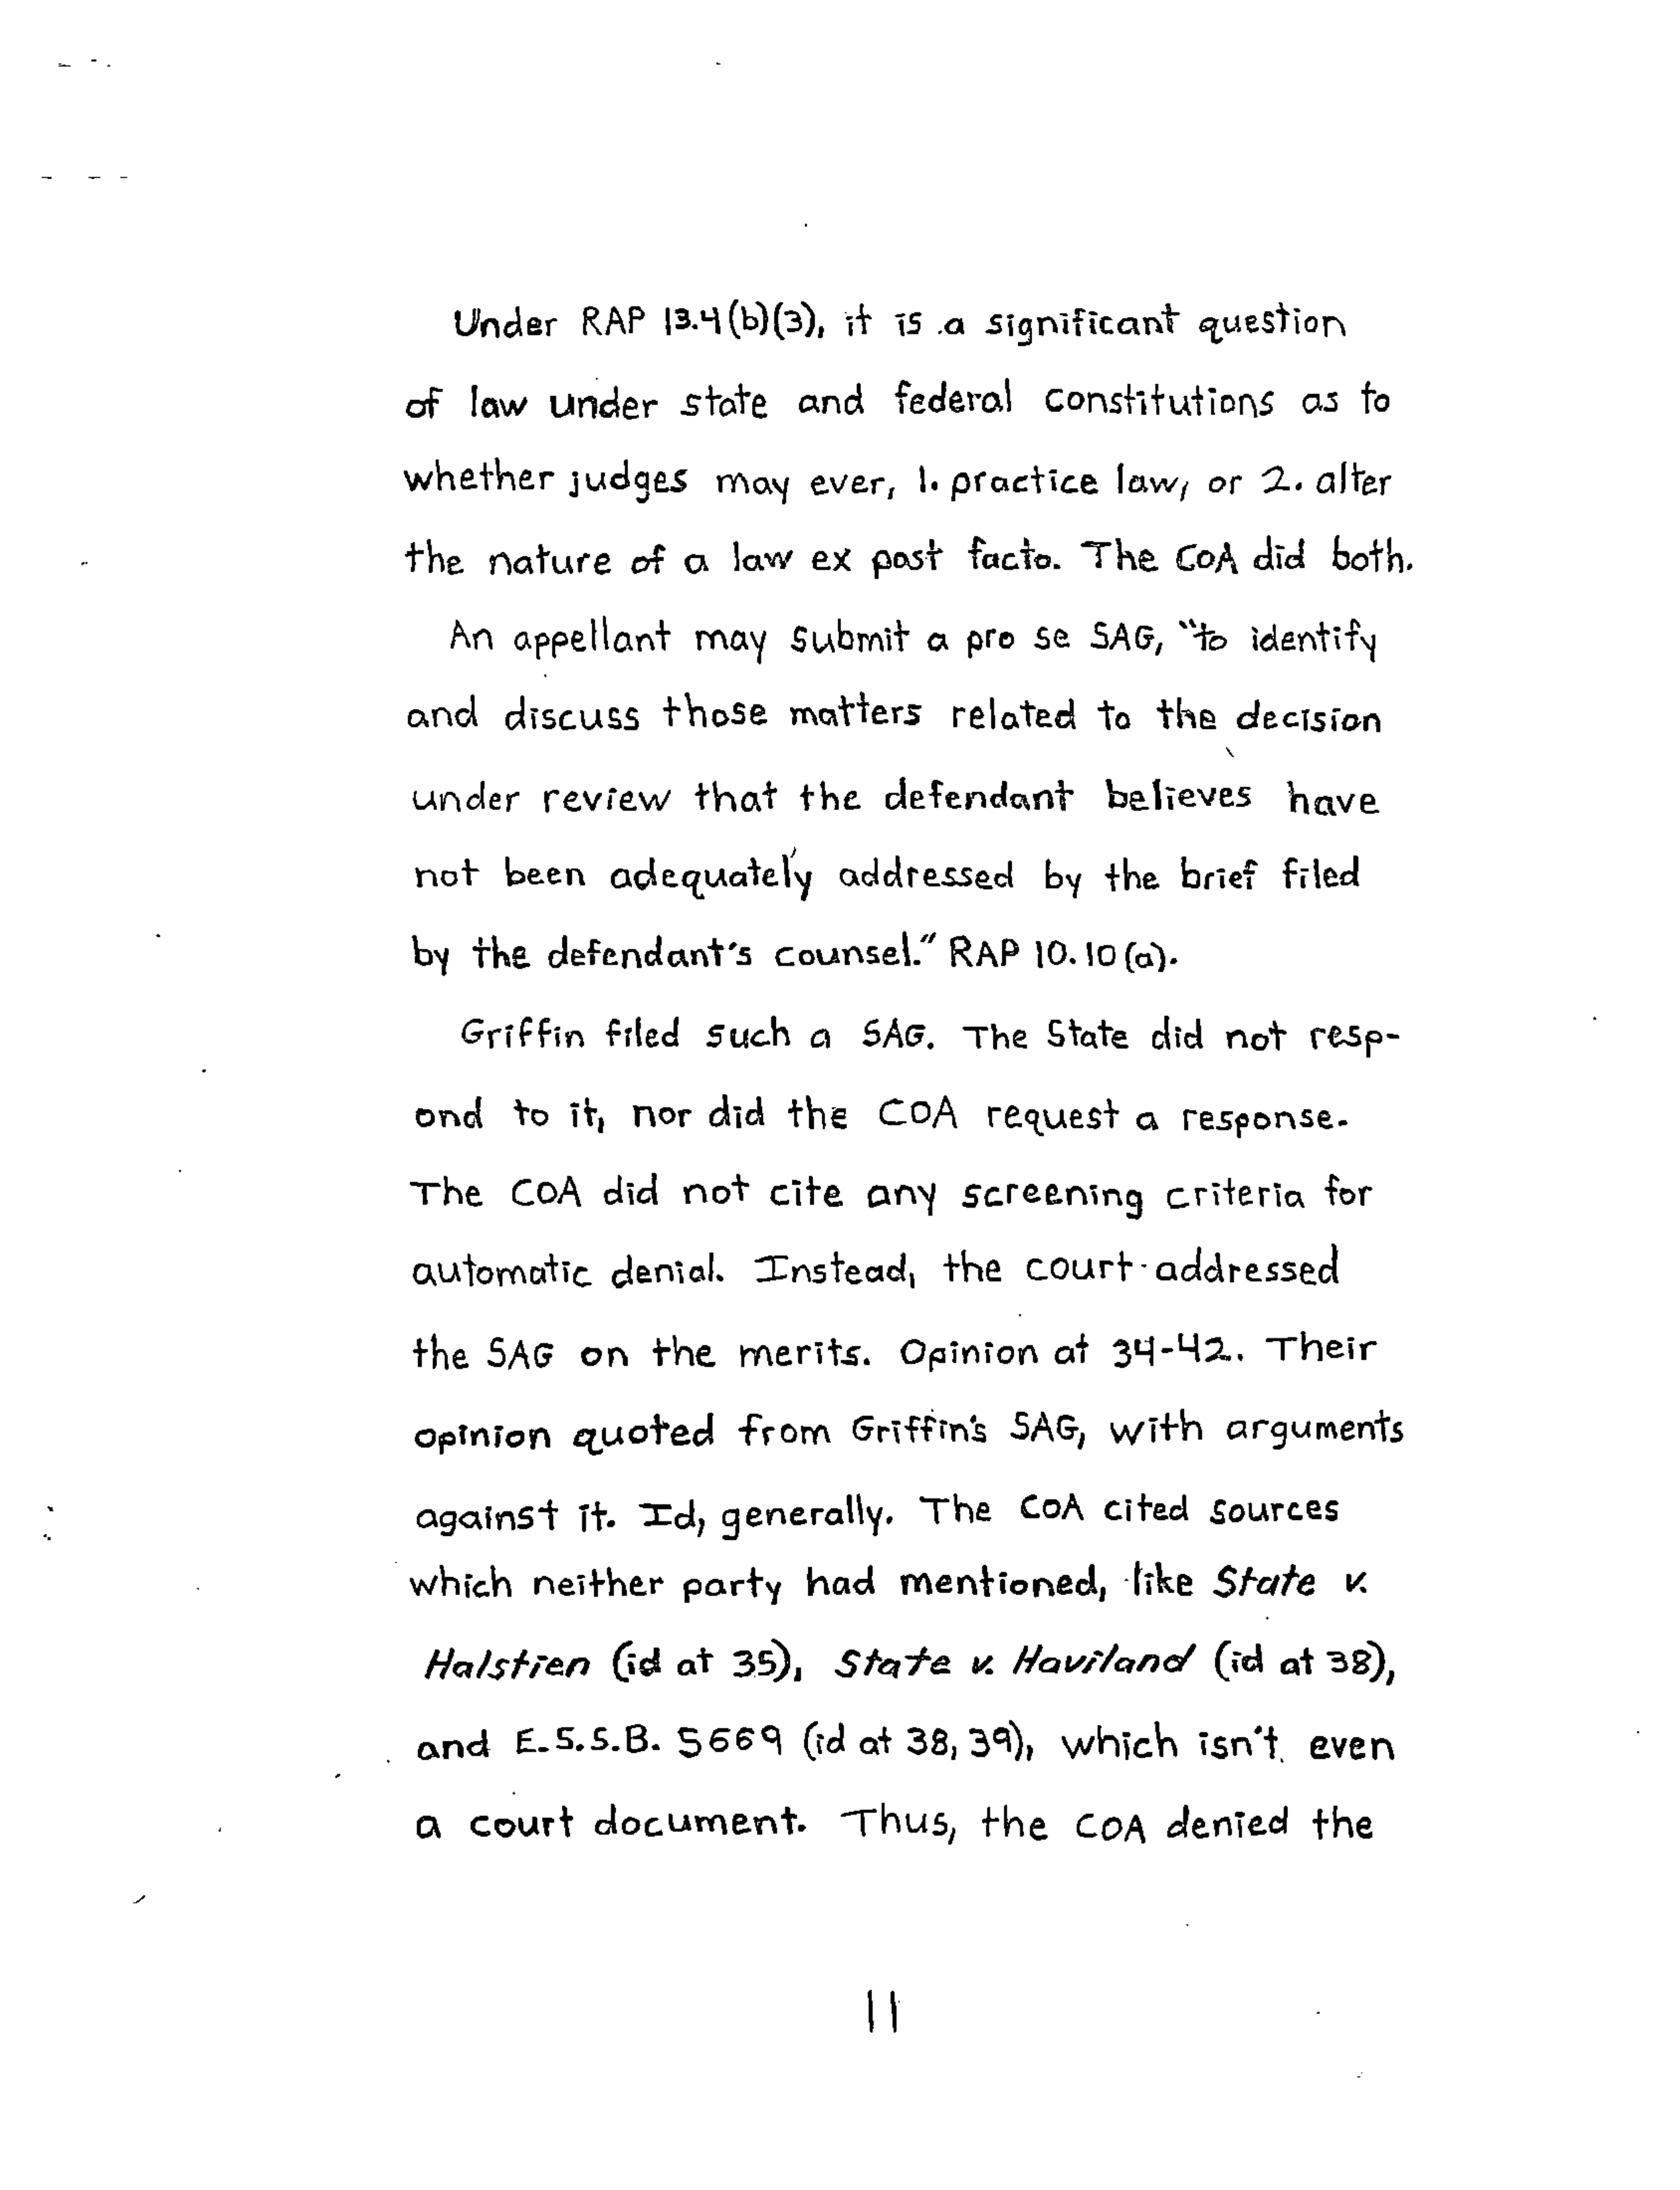 Under RAP 13.4(b)(3), it is a significant question
of law under state and federal constitutions as to
whether judges may ever, 1. practice law, or 2. alter
the nature of a law ex post facto. The COA did both.
An appellant may submit a pro se SAG, "to identify
and discuss those matters related to the decision
under review that the defendant believes have
not been adequately addressed by the brief filed
by the defendant's counsel." RAP 10.10(a).
Griffin filed such a SAG. The State did not resp-
ond to it, nor did the COA request a response.
The COA did not cite any screening criteria for
automatic denial. Instead, the court addressed
the SAG on the merits. Opinion at 34-42. Their
opinion quoted from Griffin's SAG, with arguments
against it. Id, generally. The COA cited sources
which neither party had mentioned, like State v.
Halstien (id at 35), State v. Haviland (id at 38),
and E.S.S.B. 5669 (id at 38, 39), which isn't even
a court document. Thus, the COA denied the
11